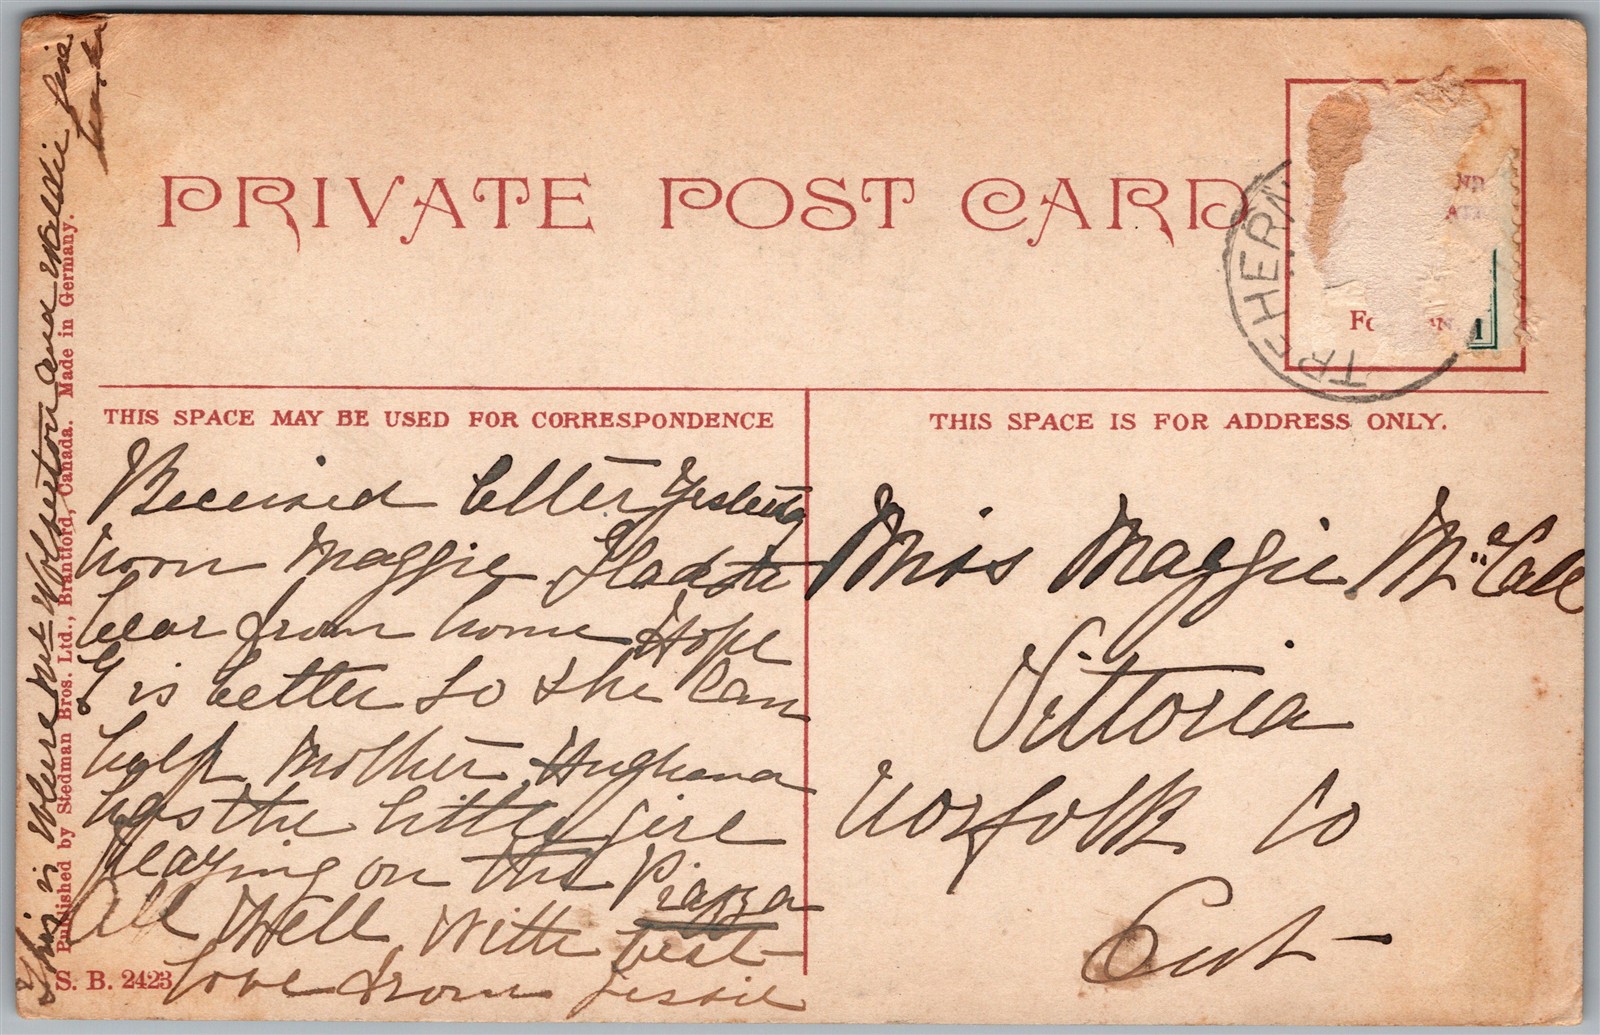 PRIVATE POST CARD
TREHERN
1
THIS SPACE MAY BE USED FOR CORRESPONDENCE
THIS SPACE IS FOR ADDRESS ONLY.
Received letter Yesterdy
from Maggie Glad to
hear from home Hope
J is better so she can
help Mother Hughena
has the little girl
playing on the Piazza
All Well With best
love from Jessie
Miss Maggie McCall
Vittoria
Norfolk Co
Ont
This is where Mrs Wolverton and Nellie
Published by Stedman Bros. Ltd., Brantford, Canada. Made in Germany.
S. B. 2423